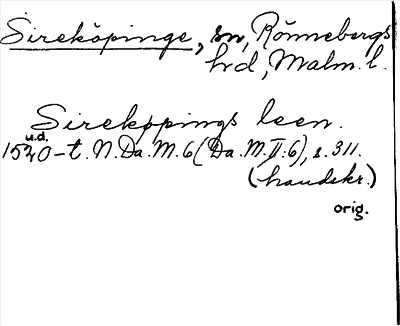 Sireköpinge, sn, Rönnebergs
hd, Malm. l.
Sirekøpings leen.
u.d.
1540-t. N.Da.M.6 (Da.M.II:6), s. 311.
(handskr.)
orig.